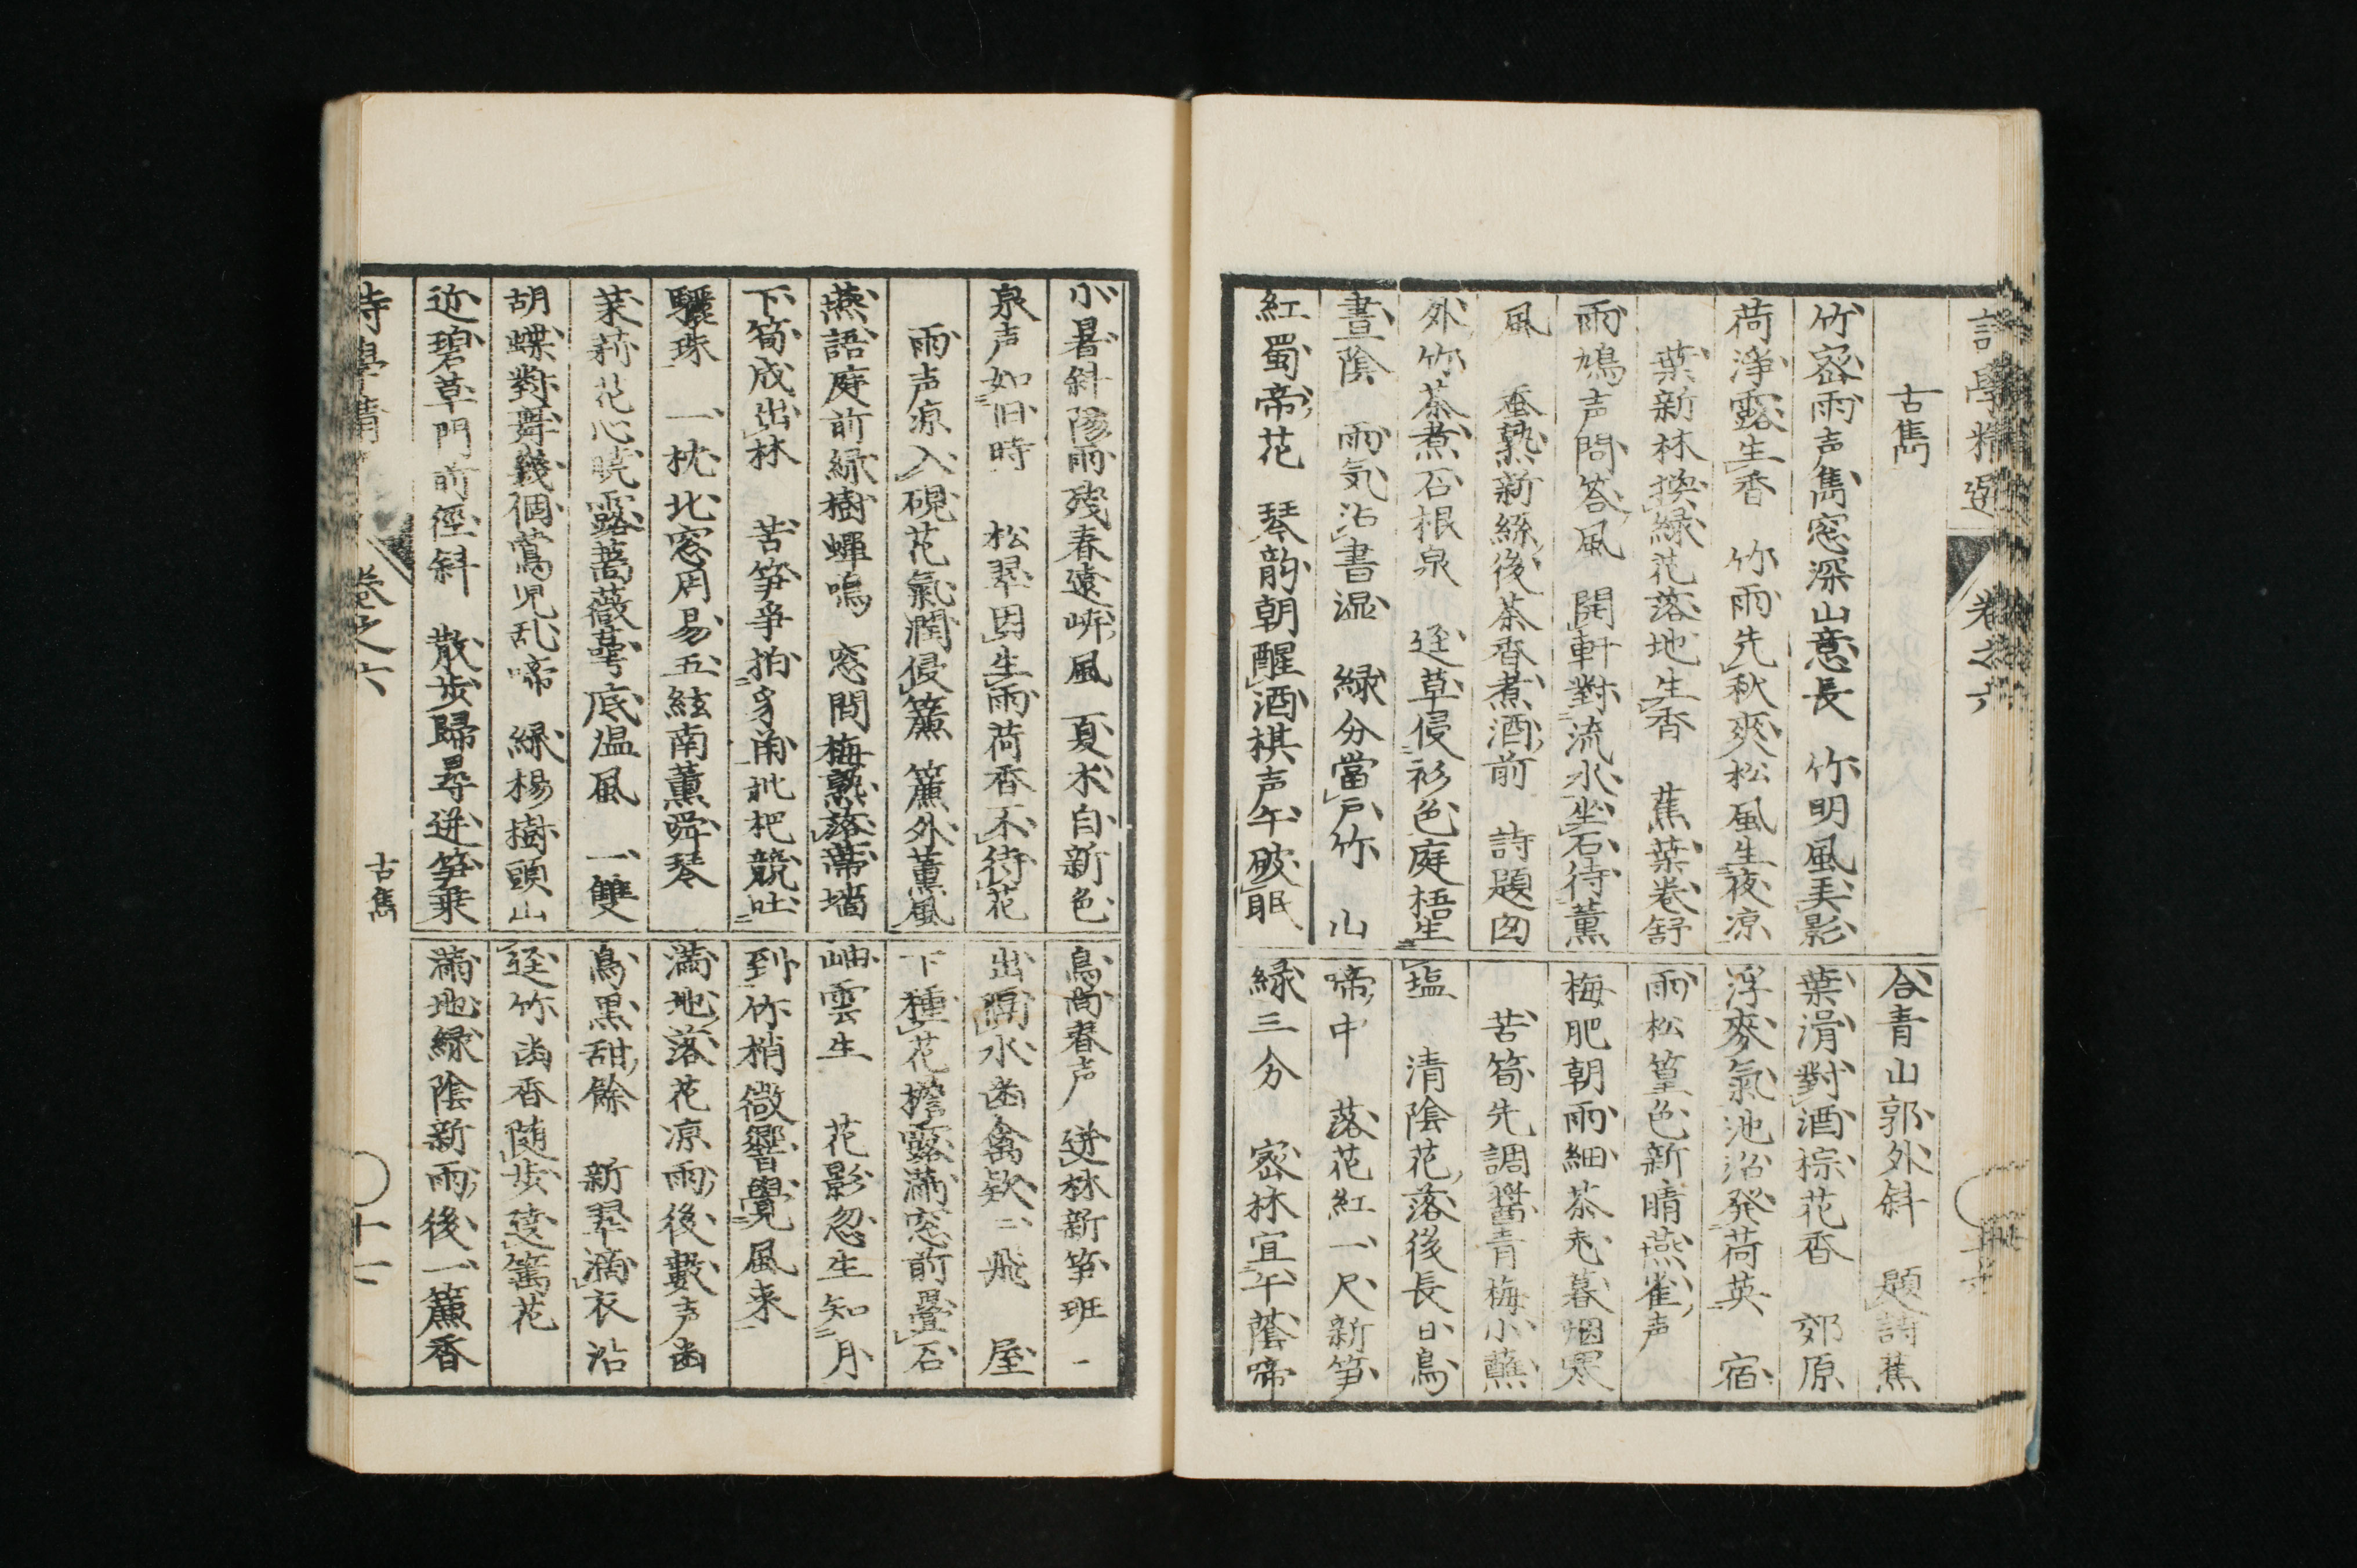 詩學精選 卷之六
古雋
竹密雨声雋窓深山意長 竹明風美影
荷淨露生香 竹雨先秋爽松風生夜凉
葉新林換緑花落地生香 蕉葉卷舒
雨鳩声問答風 開軒對流水坐石待薫
風 蚕熟新絲後茶香煮酒前 詩題囱
外竹茶煮石根泉 逕草侵衫色庭梧生
晝陰 雨気沾書湿 緑分當戸竹 山
紅蜀帝花 琴韵朝醒酒棋声午破眠
合青山郭外斜 題詩蕉
葉滑對酒棕花香 郊原
浮麥氣池沼發荷英 宿
雨松篁色新晴燕雀声
梅肥朝雨細茶老暮烟寒
苦筍先調醤青梅小蘸
塩 清陰花落後長日鳥
啼中 落花紅一尺新笋
緑三分 密林宜午蔭啼
小暑斜陽雨残春遠岍風 夏木自新色
泉声如旧時 松翠因生雨荷香不待花
雨声凉入硯花氣潤侵簾 簾外薫風
燕語庭前緑樹蟬鳴 窓間梅熟落蔕墻
下筍成出林 苦笋争抽豸角枇杷競吐
驪珠 一枕北窓周易五絃南薫舜琴
茉莉花心暁露薔薇萼底温風 一雙
胡蝶對舞幾個鶯児乱啼 緑楊樹頭山
近碧草門前徑斜 散歩歸尋迸笋乗
鳥尚春声 迸林新笋班一
出澗水幽禽欵〻飛 屋
下種花擔露滿窓前疊石
岫雲生 花影忽生知月
到竹梢微響覺風来
滿地落花凉雨後數声幽
鳥黒甜餘 新翠滴衣沾
逕竹幽香随歩遶籬花
滿地緑陰新雨後一簾香
詩學精 卷之六 古雋 十一